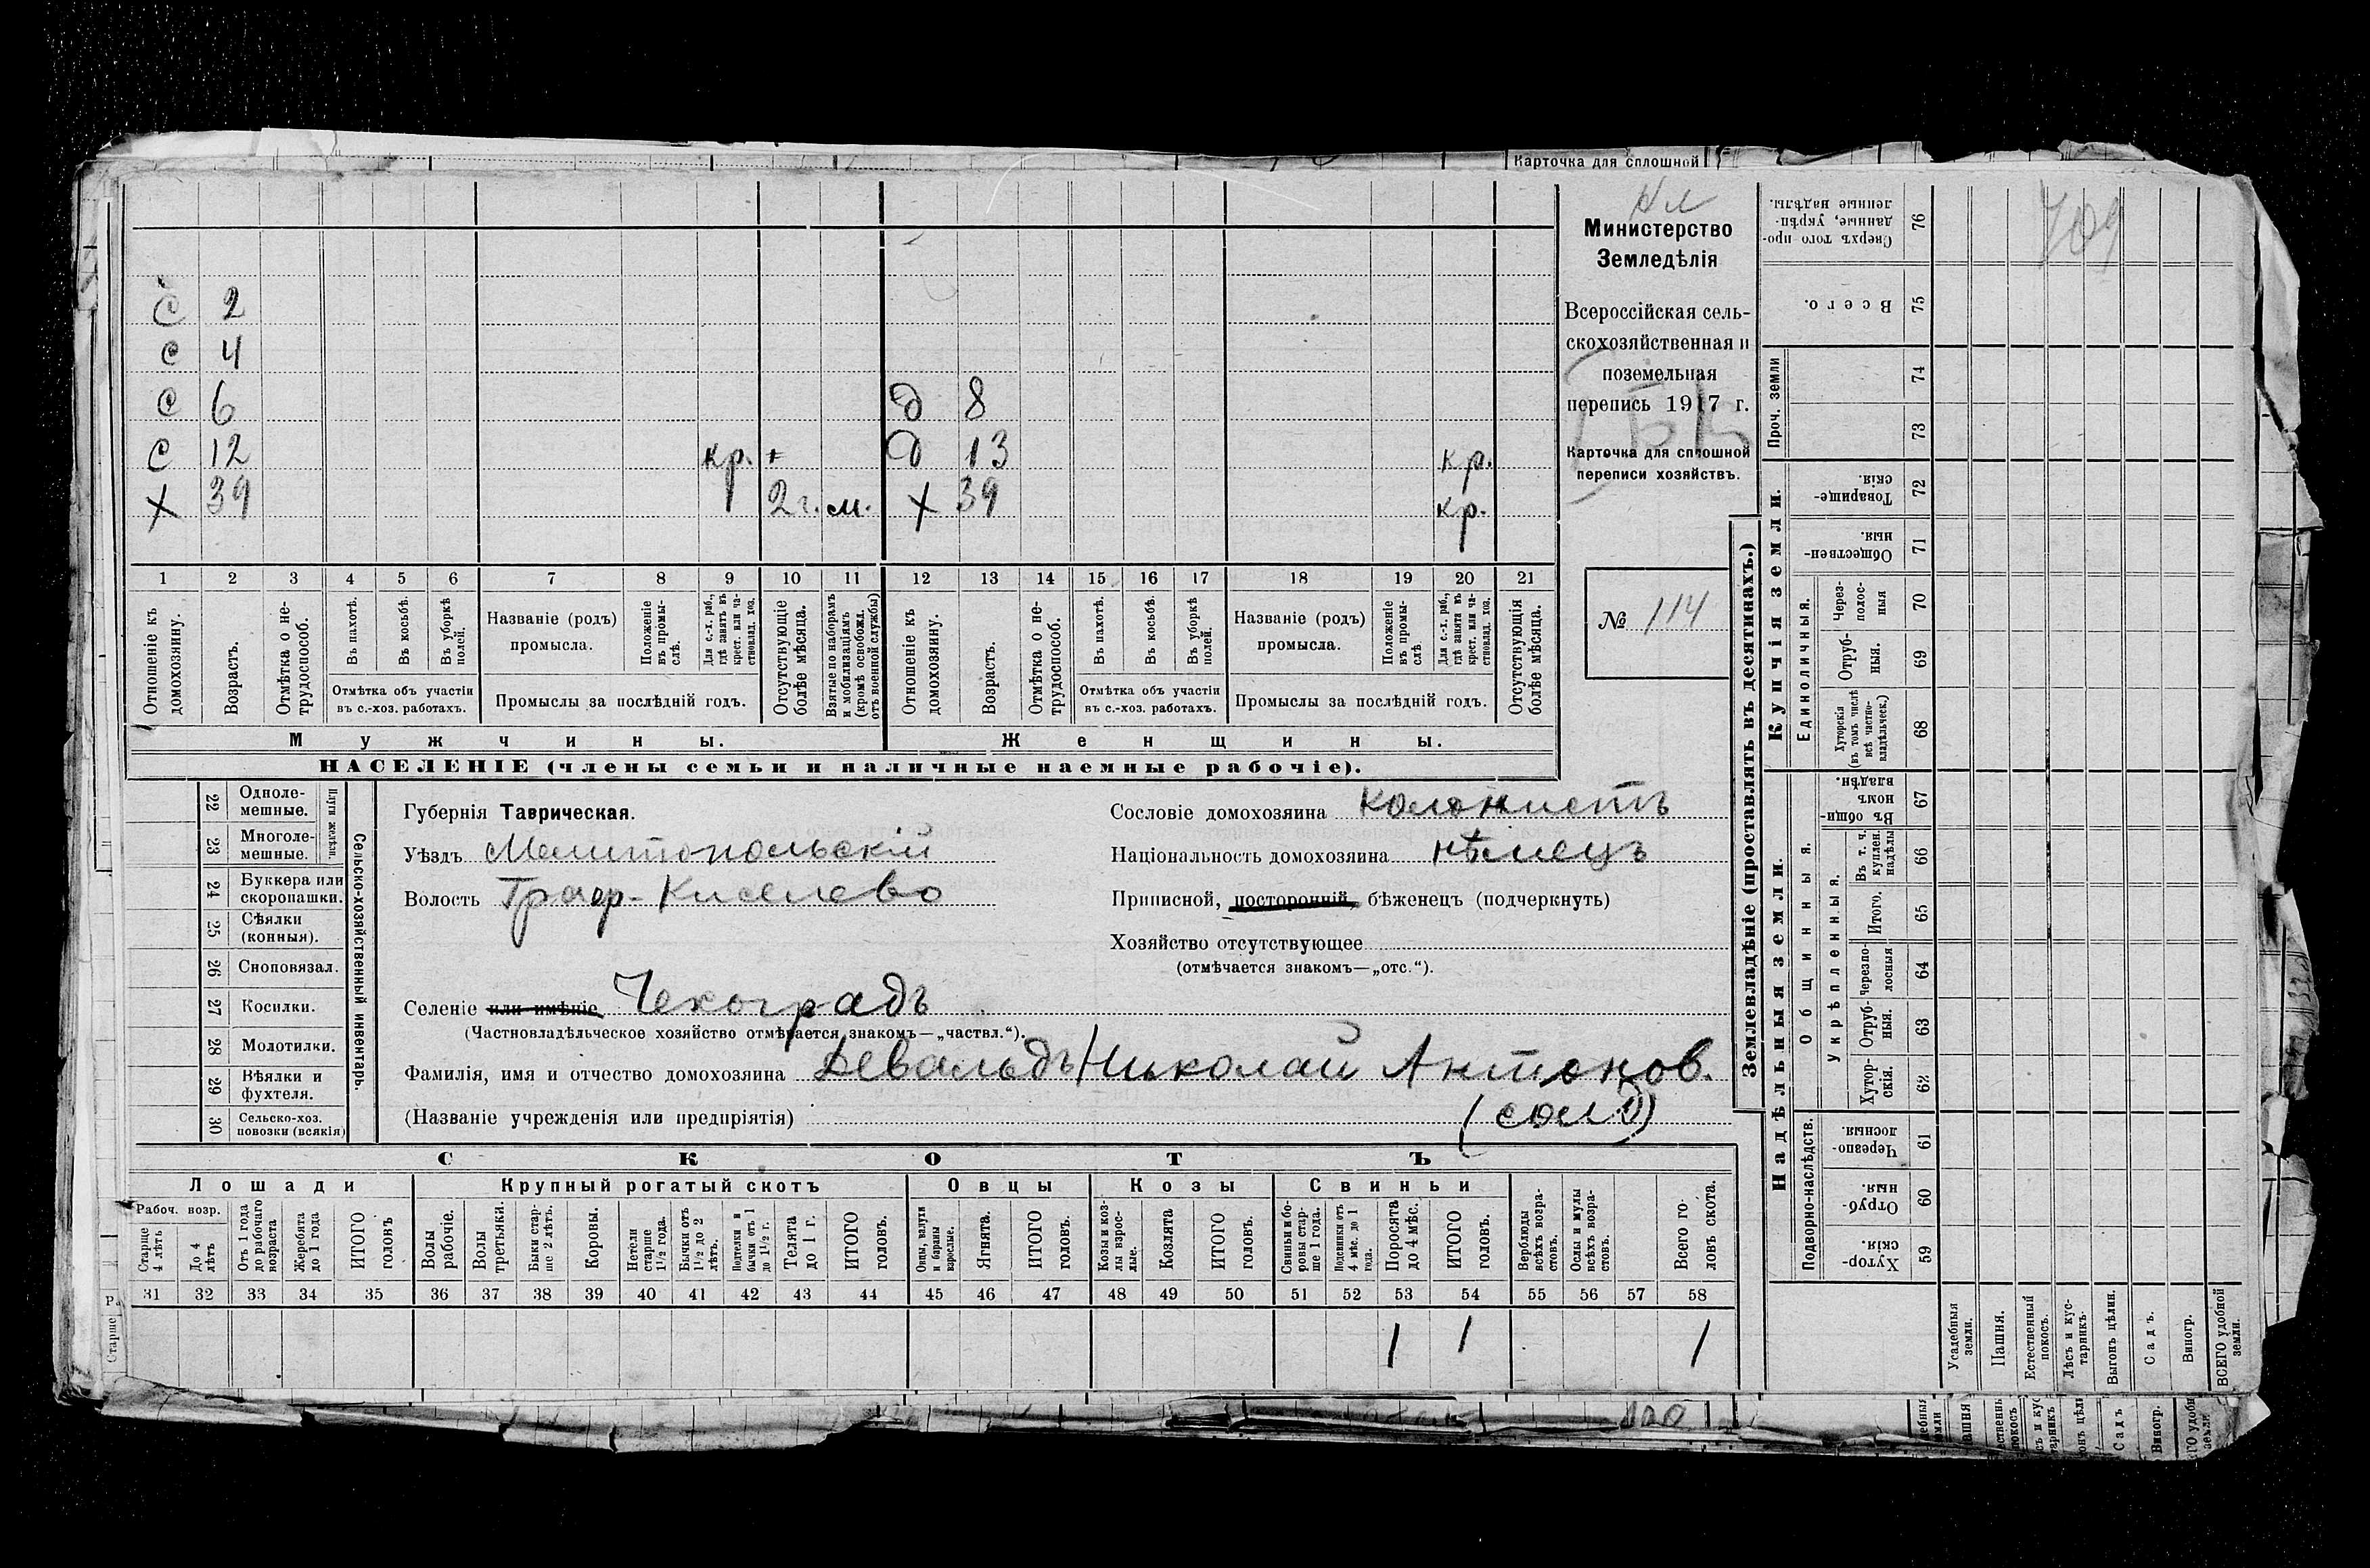 Карточка для сплошной
С 2
С 4
С 6 Д 8
С 12 кр. + Д 13 кр.
Х 39 2 г. м. Х 39 кр.
1 2 3 4 5 6 7 8 9 10 11 12 13 14 15 16 17 18 19 20 21
Отношеніе къ домохозяину.
Возрастъ.
Отмѣтка о не-трудоспособ.
Въ пахотѣ.
Въ косьбѣ.
Въ уборкѣ полей.
Отмѣтка объ участіи въ с.-хоз. работахъ.
Названіе (родъ) промысла.
Положеніе въ промы-слѣ.
Для с.-х. раб., гдѣ занятъ въ крест. или ча-стновлад. хоз.
Промыслы за послѣдній годъ.
Отсутствующіе болѣе мѣсяца.
Взятые по наборамъ и мобилизаціямъ (кромѣ освобожд. отъ военной службы)
Отношеніе къ домохозяину.
Возрастъ.
Отмѣтка о не-трудоспособ.
Въ пахотѣ.
Въ косьбѣ.
Въ уборкѣ полей.
Отмѣтка объ участіи въ с.-хоз. работахъ.
Названіе (родъ) промысла.
Положеніе въ промы-слѣ
Для с.-х. раб., гдѣ заняти въ крест. или ча-стновлад. хоз.
Промыслы за послѣдній годъ.
Отсутствующія болѣе мѣсяца.
Мужчины.
Женщины.
НАСЕЛЕНІЕ (члены семьи и наличные наемные рабочіе).
Министерство
Земледѣлія
Всероссійская сель-
скохозяйственная и
поземельная
перепись 1917 г.
Карточка для сплошной
переписи хозяйствъ.
№ 114
22 Однолемешные.
23 Многолемешные.
Плуги желѣзн.
24 Буккера или скоропашки.
25 Сѣялки (конныя).
26 Сноповязал.
27 Косилки.
28 Молотилки.
29 Вѣялки и фухтеля.
30 Сельско-хоз. повозки (всякія)
Сельско-хозяйственный инвентарь.
Губернія Таврическая.
Уѣздъ Мелитопольскій
Волость Граф-Киселево
Селеніе или имѣніе Чехоградъ
(Частновладѣльческое хозяйство отмѣчается знакомъ—„частвл.“).
Фамилія, имя и отчество домохозяина Девальдъ Николай Антонов.
(Названіе учрежденія или предпріятія)
Сословіе домохозяина колонистъ
Національность домохозяина нѣмецъ
Приписной, посторонній, бѣженецъ (подчеркнуть)
Хозяйство отсутствующее
(отмѣчается знакомъ—„отс.“).
СКОТЪ
Лошади
Крупный рогатый скотъ
Овцы
Козы
Свиньи
Рабоч. возр.
Старше 4 лѣтъ
До 4 лѣтъ
Отъ 1 года до рабочаго возраста
Жеребята до 1 года
ИТОГО головъ
Волы рабочіе.
Волы третьяки.
Быки стар-ше 2 лѣтъ.
Коровы.
Нетели старше 1½ года.
Бычки отъ 1½ до 2 лѣтъ.
Подтелки и бычки отъ 1 до 1½ г.
Телята до 1 г.
ИТОГО головъ.
Овцы, валухи и бараны взрослые.
Ягнята.
ИТОГО головъ.
Козы и коз-лы взрос-лые.
Козлята
ИТОГО головъ.
Свиньи и бо-ровы стар-ше 1 года.
Подсвинки отъ 4 мѣс. до 1 года.
Поросята до 4 мѣс.
ИТОГО головъ.
Верблюды всѣхъ возра-стовъ.
Ослы и мулы всѣхъ возра-стовъ.
Всего го-ловъ скота.
31 32 33 34 35 36 37 38 39 40 41 42 43 44 45 46 47 48 49 50 51 52 53 54 55 56 57 58
1 1 1
Землевладѣніе (проставлять въ десятинахъ.)
Купчія земли.
Надѣльныя земли.
76 Сверхъ того про-данные, укрѣп-ленные надѣлы.
75 Всего.
Проч. земли
74
73
72 Товарище-скія.
71 Обществен-ныя.
Единоличныя.
70 Через-полос-ныя
69 Отруб-ныя.
68 Хуторскія (въ томъ числѣ всѣ частно-владѣльческ.)
67 Въ общи-номъ владѣн.
66 Въ т. ч. куплен. надѣлы
65 Итого.
64 Черезпо-лосныя
63 Отруб-ныя.
62 Хутор-скія.
Общинныя.
Укрѣпленныя.
61 Черезпо-лосныя.
60 Отруб-ныя.
59 Хутор-скія.
Подворно-наслѣдств.
Усадебныя земли.
Пашня.
Естественный покосъ.
Лѣсъ и кус-тарникъ.
Выгонъ цѣлин.
Садъ.
Виногр.
ВСЕГО удобной земли.
709